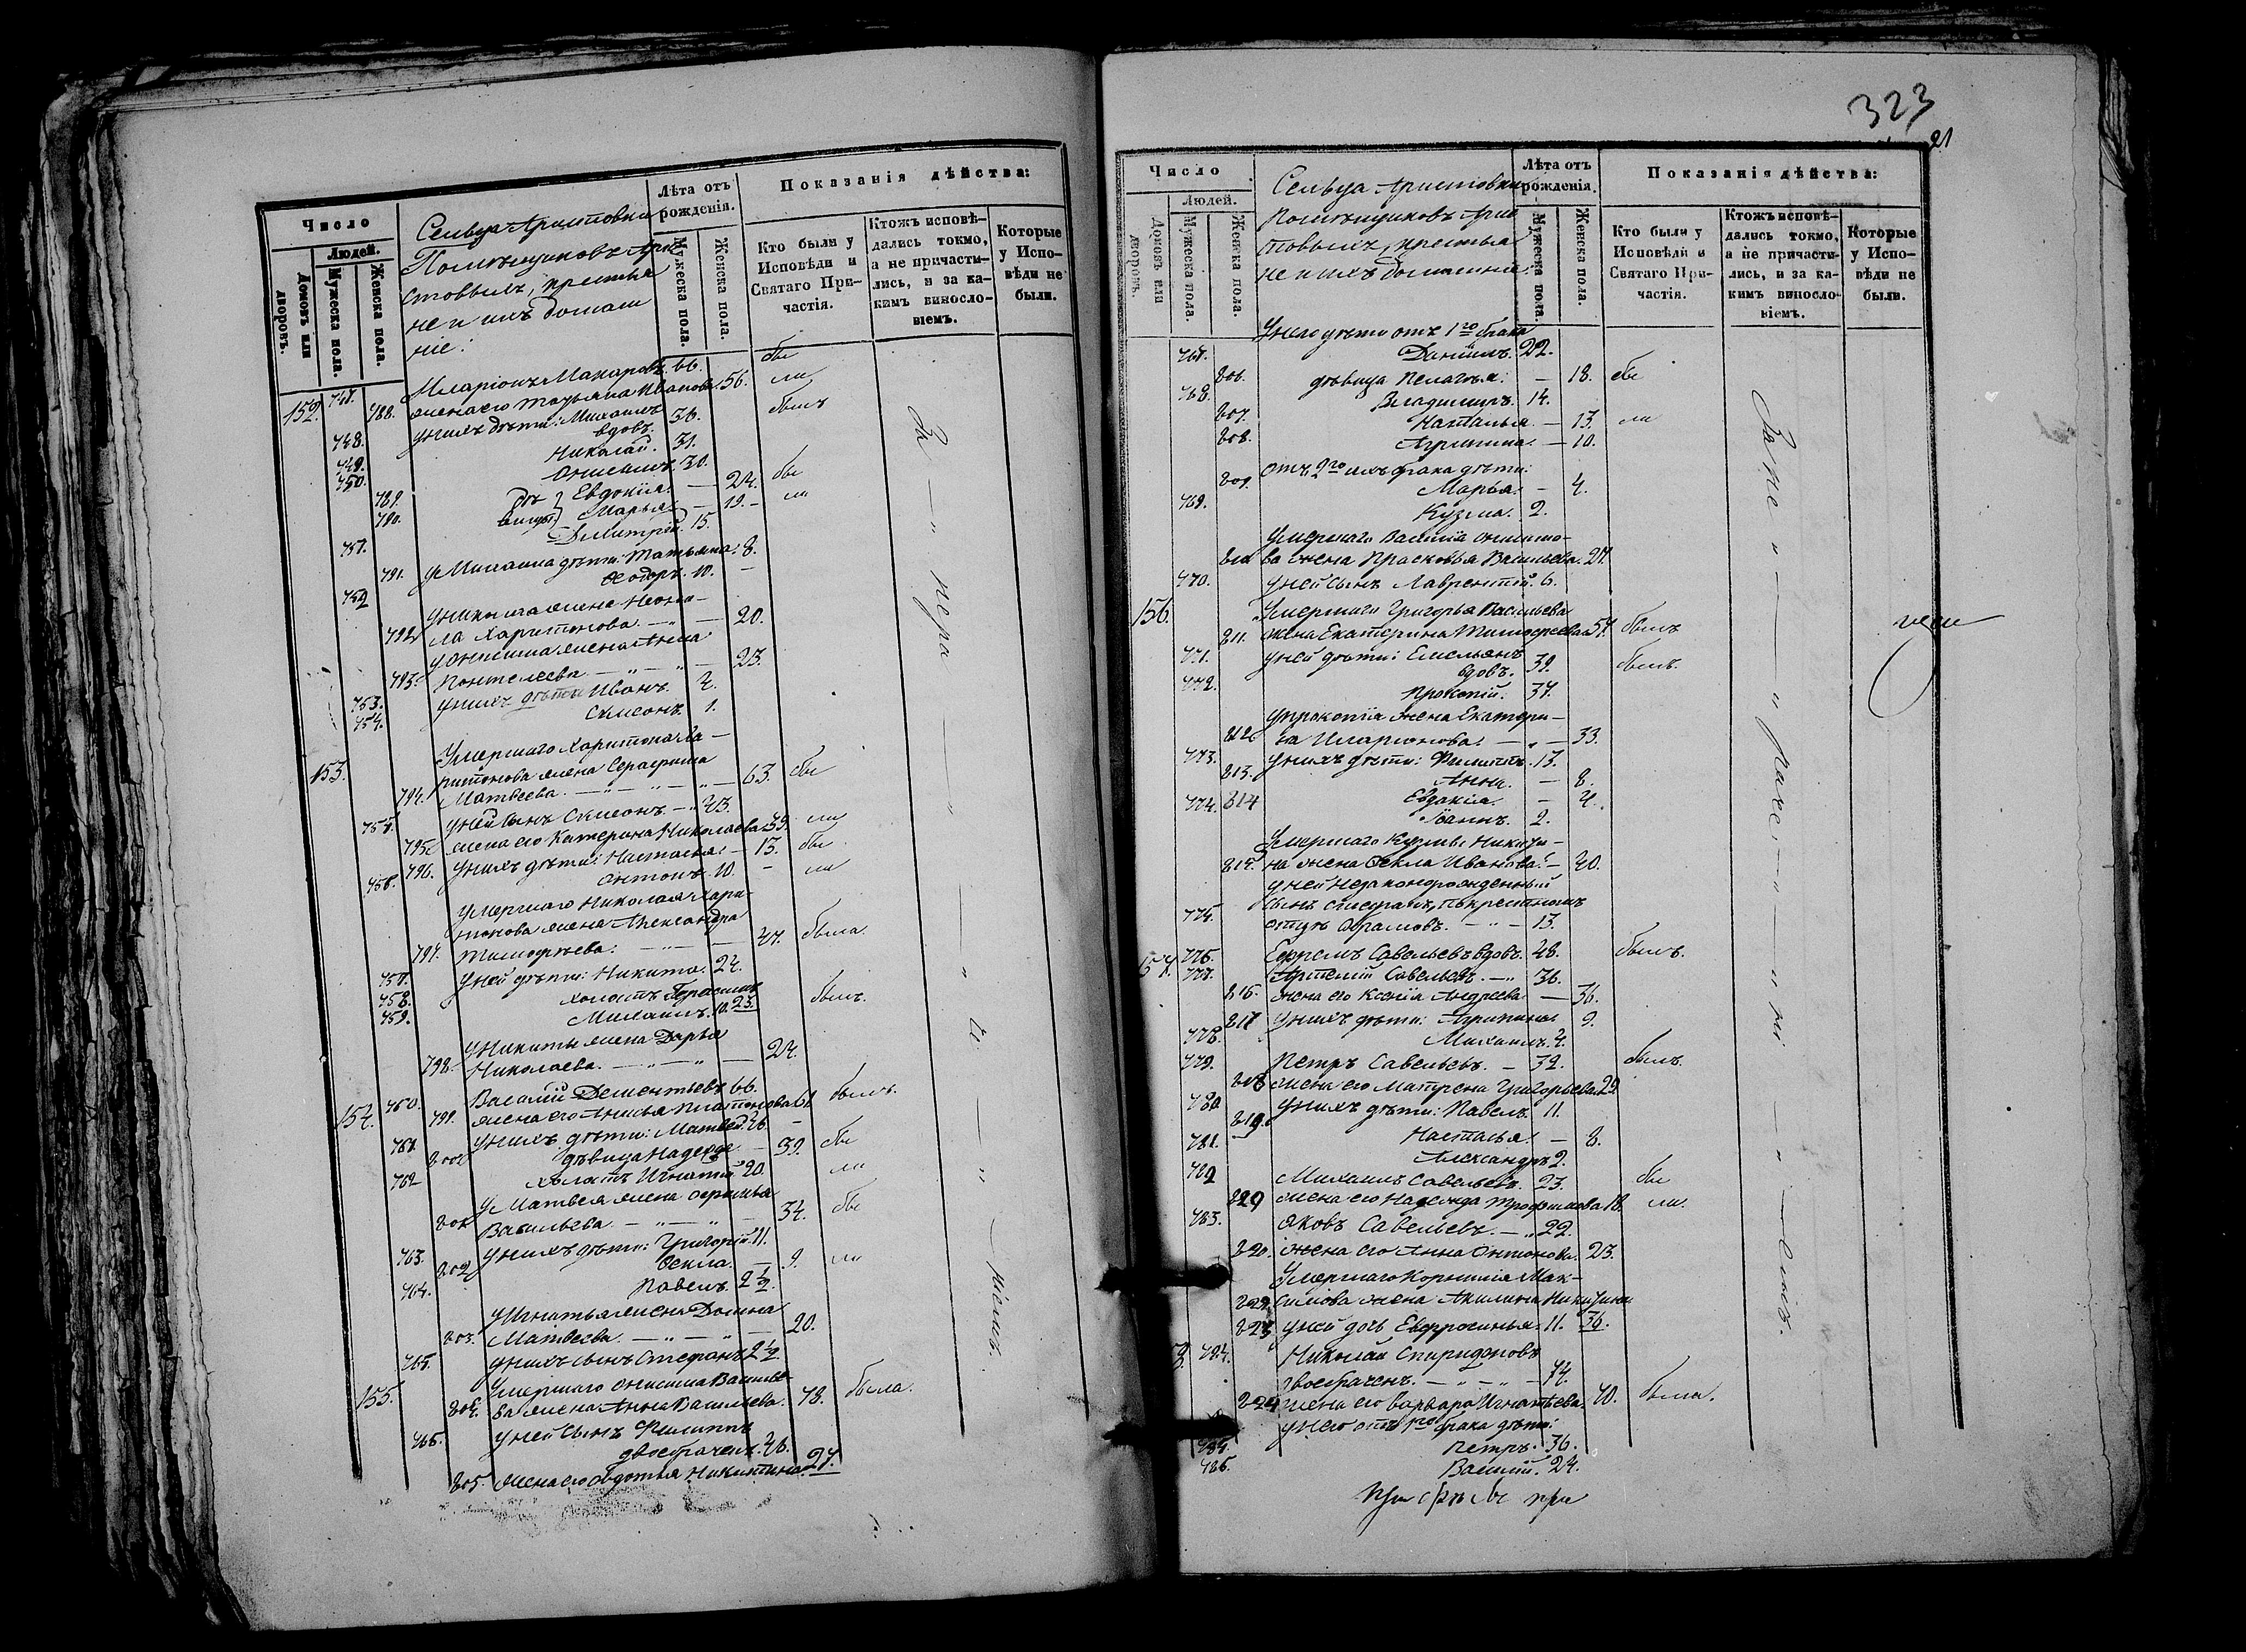 Число
Людей.
Домовъ или дворовъ.
Мужеска пола.
Женска пола.
Сельца Аристовки
Помѣщиковъ Ари
стовыхъ, крестья
не и ихъ домаш
ніе:
Лѣта отъ рожденія.
Мужеска пола.
Женска пола.
Показанія дѣйства:
Кто были у Исповѣди и Святаго Причастія.
Ктожъ исповѣдались токмо, а не причастились, и за какимъ винословіемъ.
Которые у Исповѣди не были.
152. 747. Иларіонъ Макаровъ. 66. бы
788. жена его Татьяна Иванова. 56. ли
748. у нихъ дѣти: Михаилъ
вдовъ. 36. былъ
749. Николай. 31.
750. Онисимъ. 30.
789. Евдокія. — 24. бы
790. Марья. — 19. ли
751. Димитрій. 15.
791. у Михаила дѣти: Татьяна. 8.
752 Ѳеодоръ. 10.
у Николая жена Неони-
792 ла Харитонова. — 20.
у Онисима жена Анна
793. Пантелеева — 23.
753. у нихъ дѣти Иванъ. 4.
754. Симеонъ. 1.
153. Умершаго Харитона Ха-
ритонова жена Серафима
794. Матвеева. — 63. бы
755. у ней сынъ Симеонъ. — 43.
795. жена его Катерина Николаева. 39. ли
796. у нихъ дѣти: Настасья. — 13. бы
756. Антонъ. 10. ли
умершаго Николая Хари-
тонова жена Александра
797. Тимофѣева: — 47. была
757. у ней дѣти: Никита. 24.
758. холостъ Герасимъ
759. Михаилъ. 10. 23. былъ.
у Никиты жена Дарья
798. Николаева. — 24.
154. 760. Василій Дементьевъ 66.
799. жена его Анисья Платонова 61 былъ.
761. у нихъ дѣти: Матвей. 46.
800 дѣвица Надежда — 39. бы
762 холостъ Игнатій 20. ли
у Матвея жена
801 Васильева — 34. бы
763. у нихъ дѣти: Григорій. 11.
802 Ѳекла. — 9. ли
764. Павелъ. 2 1/2.
у Игнатья жена Домна
803. Матвеева. — 20.
765. у нихъ сынъ Стефанъ 2 1/2.
155. Умершаго Онисима Василье-
804. ва жена Анна Васильева. 78. была.
766. у ней сынъ Филиппъ
двоебраченъ. 46.
805. жена его Авдотья Никитина. 27.
За — " нера — " че — " ніемъ.
323
21
Число
Людей.
Домовъ или дворовъ.
Мужеска пола.
Женска пола.
Сельца Аристовки
Помѣщиковъ Арис
товыхъ, крестья
не и ихъ домашніе:
Лѣта отъ рожденія.
Мужеска пола.
Женска пола.
Показанія дѣйства:
Кто были у Исповѣди и Святаго Причастія.
Ктожъ исповѣдались токмо, а не причастились, и за какимъ винословіемъ.
Которые у Исповѣди не были.
у него дѣти отъ 1го брака
767. Даніилъ. 22.
806. дѣвица Пелагѣя. — 18. бы
768. Владимиръ. 14.
807. Наталья — 13. ли
808. Агрипина. — 10.
отъ 2го ихъ брака дѣти:
809. Марья. — 4.
769. Кузма. 2.
Умершаго Василія Онисимо-
810 ва жена Прасковья Васильева. 27.
770. у ней сынъ Лаврентій. 6.
156. Умершаго Григорья Васильева
811. жена Екатерина Тимофеева 57. былъ
771. у ней дѣти: Емельянъ
вдовъ. 39. былъ.
772. Прокопій. 37.
у Прокопія жена Екатери-
812 на Иларионова. — 33.
773. у нихъ дѣти: Филиппъ. 13.
813. Анна. — 8.
814 Евдакія. — 4.
774. Іоаннъ. 2.
Умершаго Кузмы Никити-
815. на жена Ѳекла Иванова. — 40.
у ней незаконорожденный
775. сынъ Стефанъ, по крестному
отцѣ Абрамовъ. — 13.
157. 776. Ефремъ Савельевъ вдовъ. 48. былъ.
777. Артемій Савельевъ — 36.
816. жена его Ксенія Андреева — 36.
817 у нихъ дѣти: Агрипина. 9.
778. Михаилъ. 4.
779. Петръ Савельевъ. — 32. былъ.
818 жена его Матрена Григорьева 29
780 у нихъ дѣти: Павелъ. 11.
819. Настасья. — 8.
781. Александръ 2.
782 Михаилъ Савельевъ. 23. бы
820 жена его Надежда Трофимова 18. ли.
783. Яковъ Савельевъ. — 22.
821. жена его Анна Антонова. 23.
Умершаго Корнилія Мак-
822. симова жена Акилина Никитина
823 у ней дочь Евфросинья. 11. 36.
784. Николай Спиридоновъ
двоебраченъ. — 74.
824 жена его Варвара Игнатьева. 70. была.
у него отъ 1го брака дѣти:
785. Петръ. 36.
786. Василій. 24.
За не — " раче — " ні — " емъ.